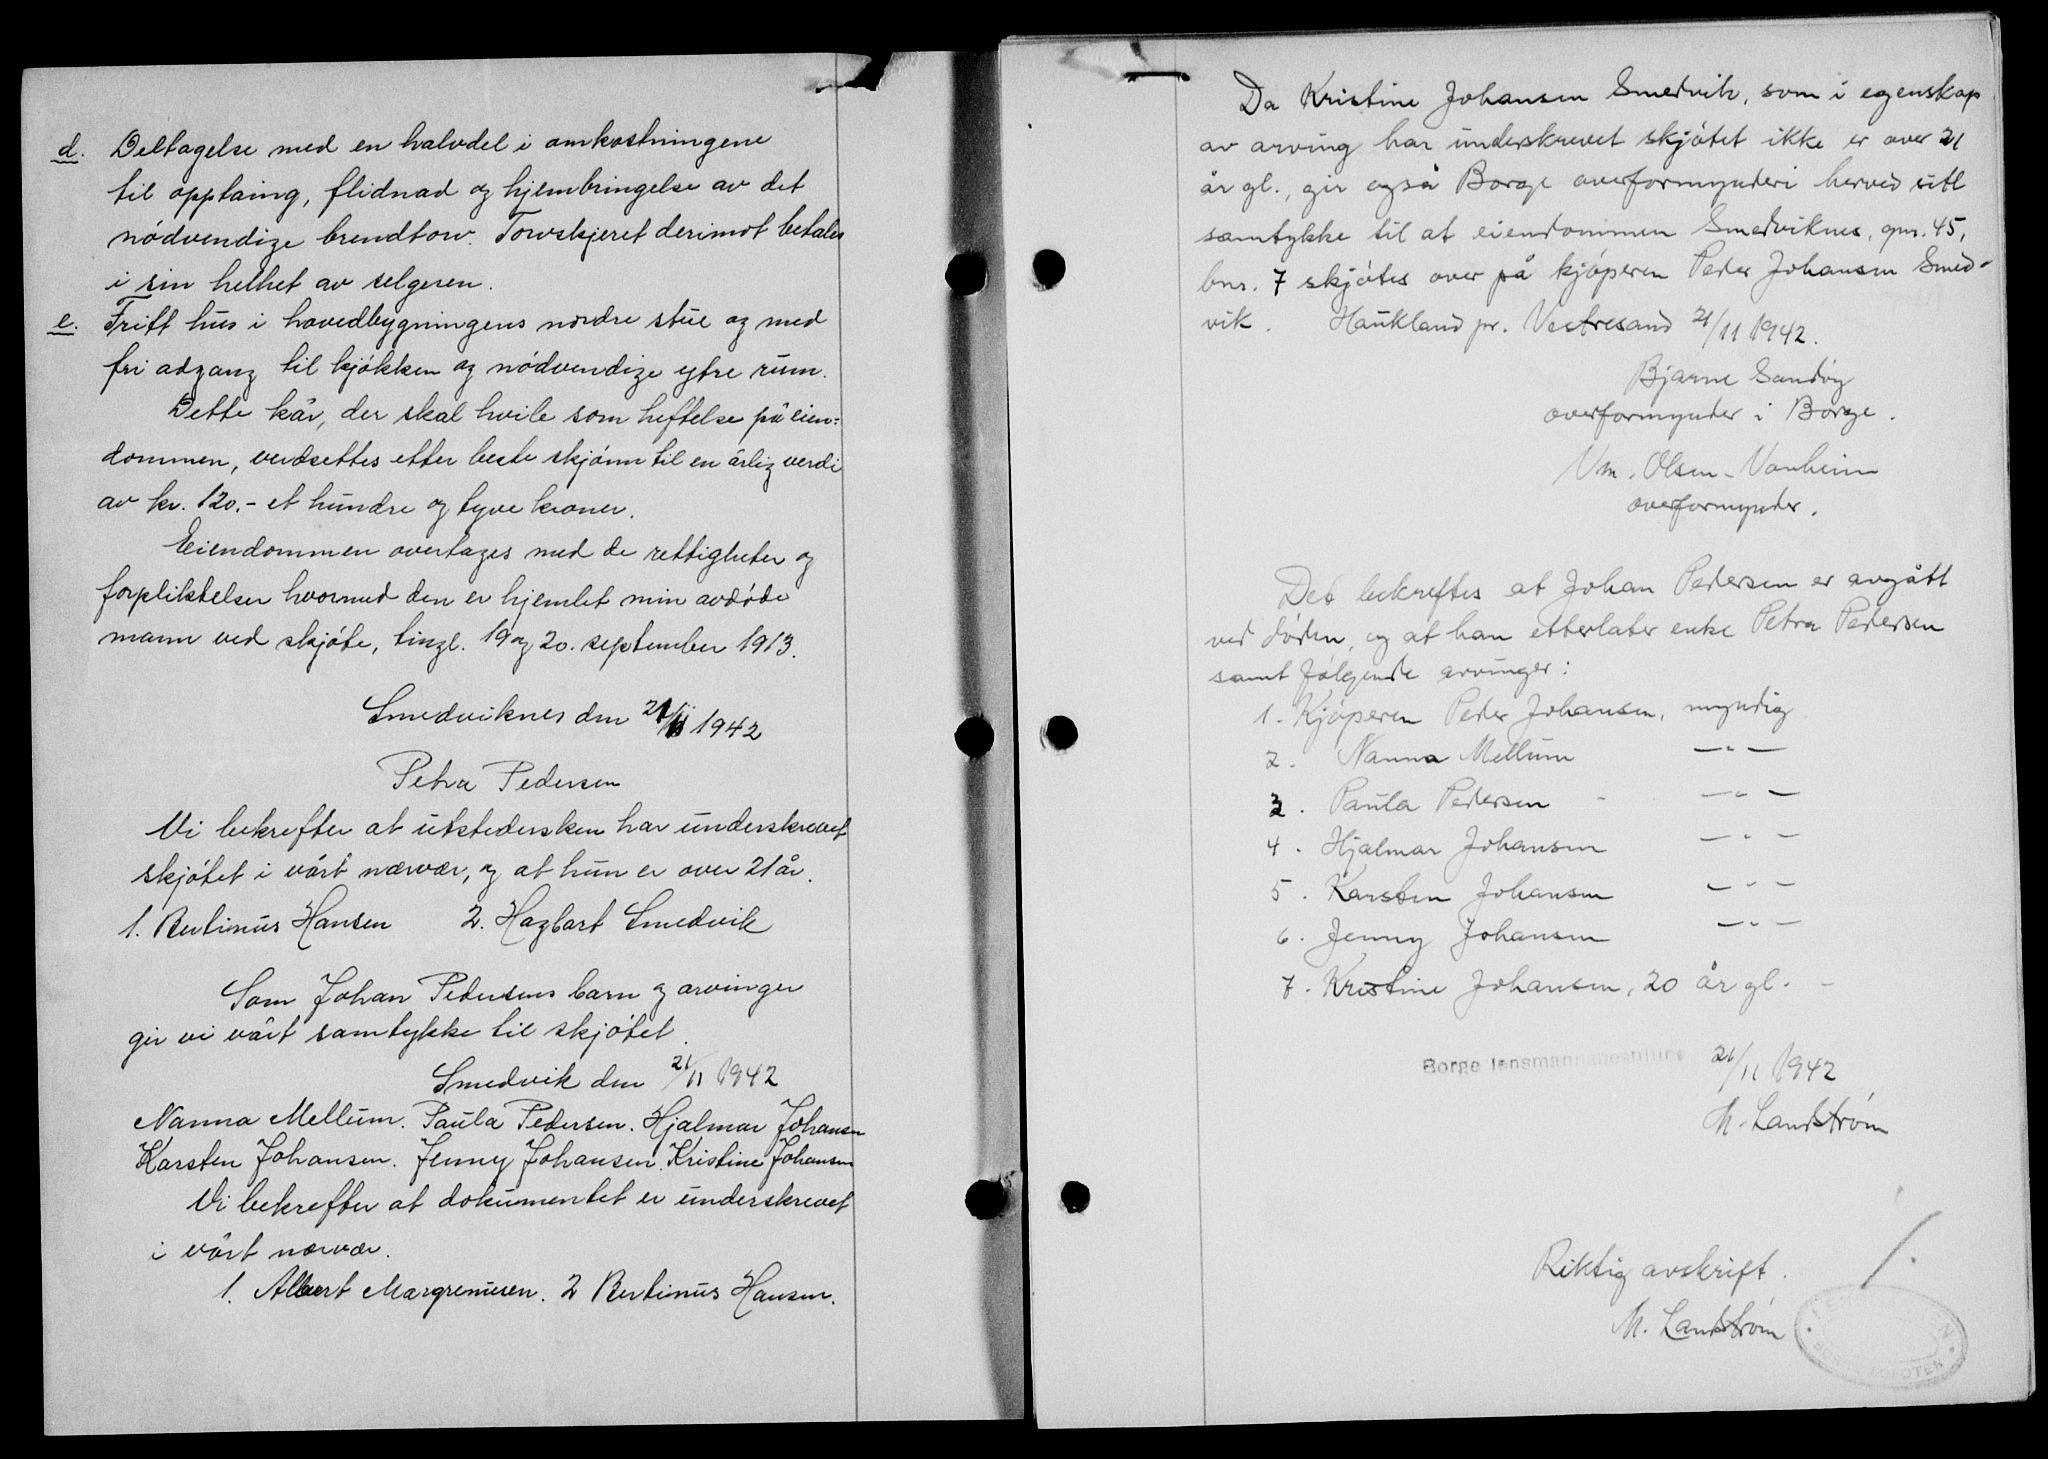 d. Deltagelse med en halvdel i omkostningene
til opptaing, flidnad og hjembringelse av det
nödvendige brendtorv. Torvskjeret derimot betales
i sin helhet av selgeren.
e. Fritt hus i hovedbygningens nordre stue og med
fri adgang til kjökken og nödvendige ytre rum.
Dette kår, der skal hvile som heftelse på eien=
dommen, verdsettes etter beste skjönn til en årlig verdi
av kr. 120.- et hundre og tyve kroner.
Eiendommen overtages med de rettigheter og
forpliktelser hvormed den er hjemlet min avdöde
mann ved skjöte, tingl. 19 og 20. september 1913.
Smedviknes den 21/11 1942
Petra Pedersen
Vi bekrefter at utstedersken har underskrevet
skjötet i vårt nærvær, og at hun er over 21 år.
1. Bertinus Hansen 2. Hagbart Smedvik
Som Johan Pedersens barn og arvinger
gir vi vårt samtykke til skjötet.
Smedvik den 21/11 1942
Nanna Mellum. Paula Pedersen. Hjalmar Johansen
Karsten Johansen. Jenny Johansen. Kristine Johansen
Vi bekrefter at dokumentet er underskrevet
i vårt nærvær.
1. Albert Margrenusen. 2 Bertinus Hansen.
Da Kristine Johansen Smedvik, som i egenskap
av arving har underskrevet skjötet ikke er over 21
år gl., gir også Borge overformynderi herved sitt
samtykke til at eiendommen Smedviknes, gnr. 45,
bnr. 7 skjötes over på kjöperen Peder Johansen Smed-
vik. Haukland pr. Vestresand 21/11 1942.
Bjarne Sandöy
overformynder i Borge.
Vm. Olsen-Vanheim
overformynder.
Det bekreftes at Johan Pedersen er avgått
ved döden, og at han etterlater enke Petra Pedersen
samt fölgende arvinger:
1. Kjöperen Peder Johansen, myndig
2. Nanna Mellum —"—
3. Paula Pedersen - —"—
4. Hjalmar Johansen —"—
5. Karsten Johansen —"—
6. Jenny Johansen —"—
7. Kristine Johansen, 20 år gl. -
Borge lensmannsbestilling 21/11 1942
M. Landstrøm
Riktig avskrift.
M. Landstrøm
LENSMANNEN
BORGE LOFOTEN